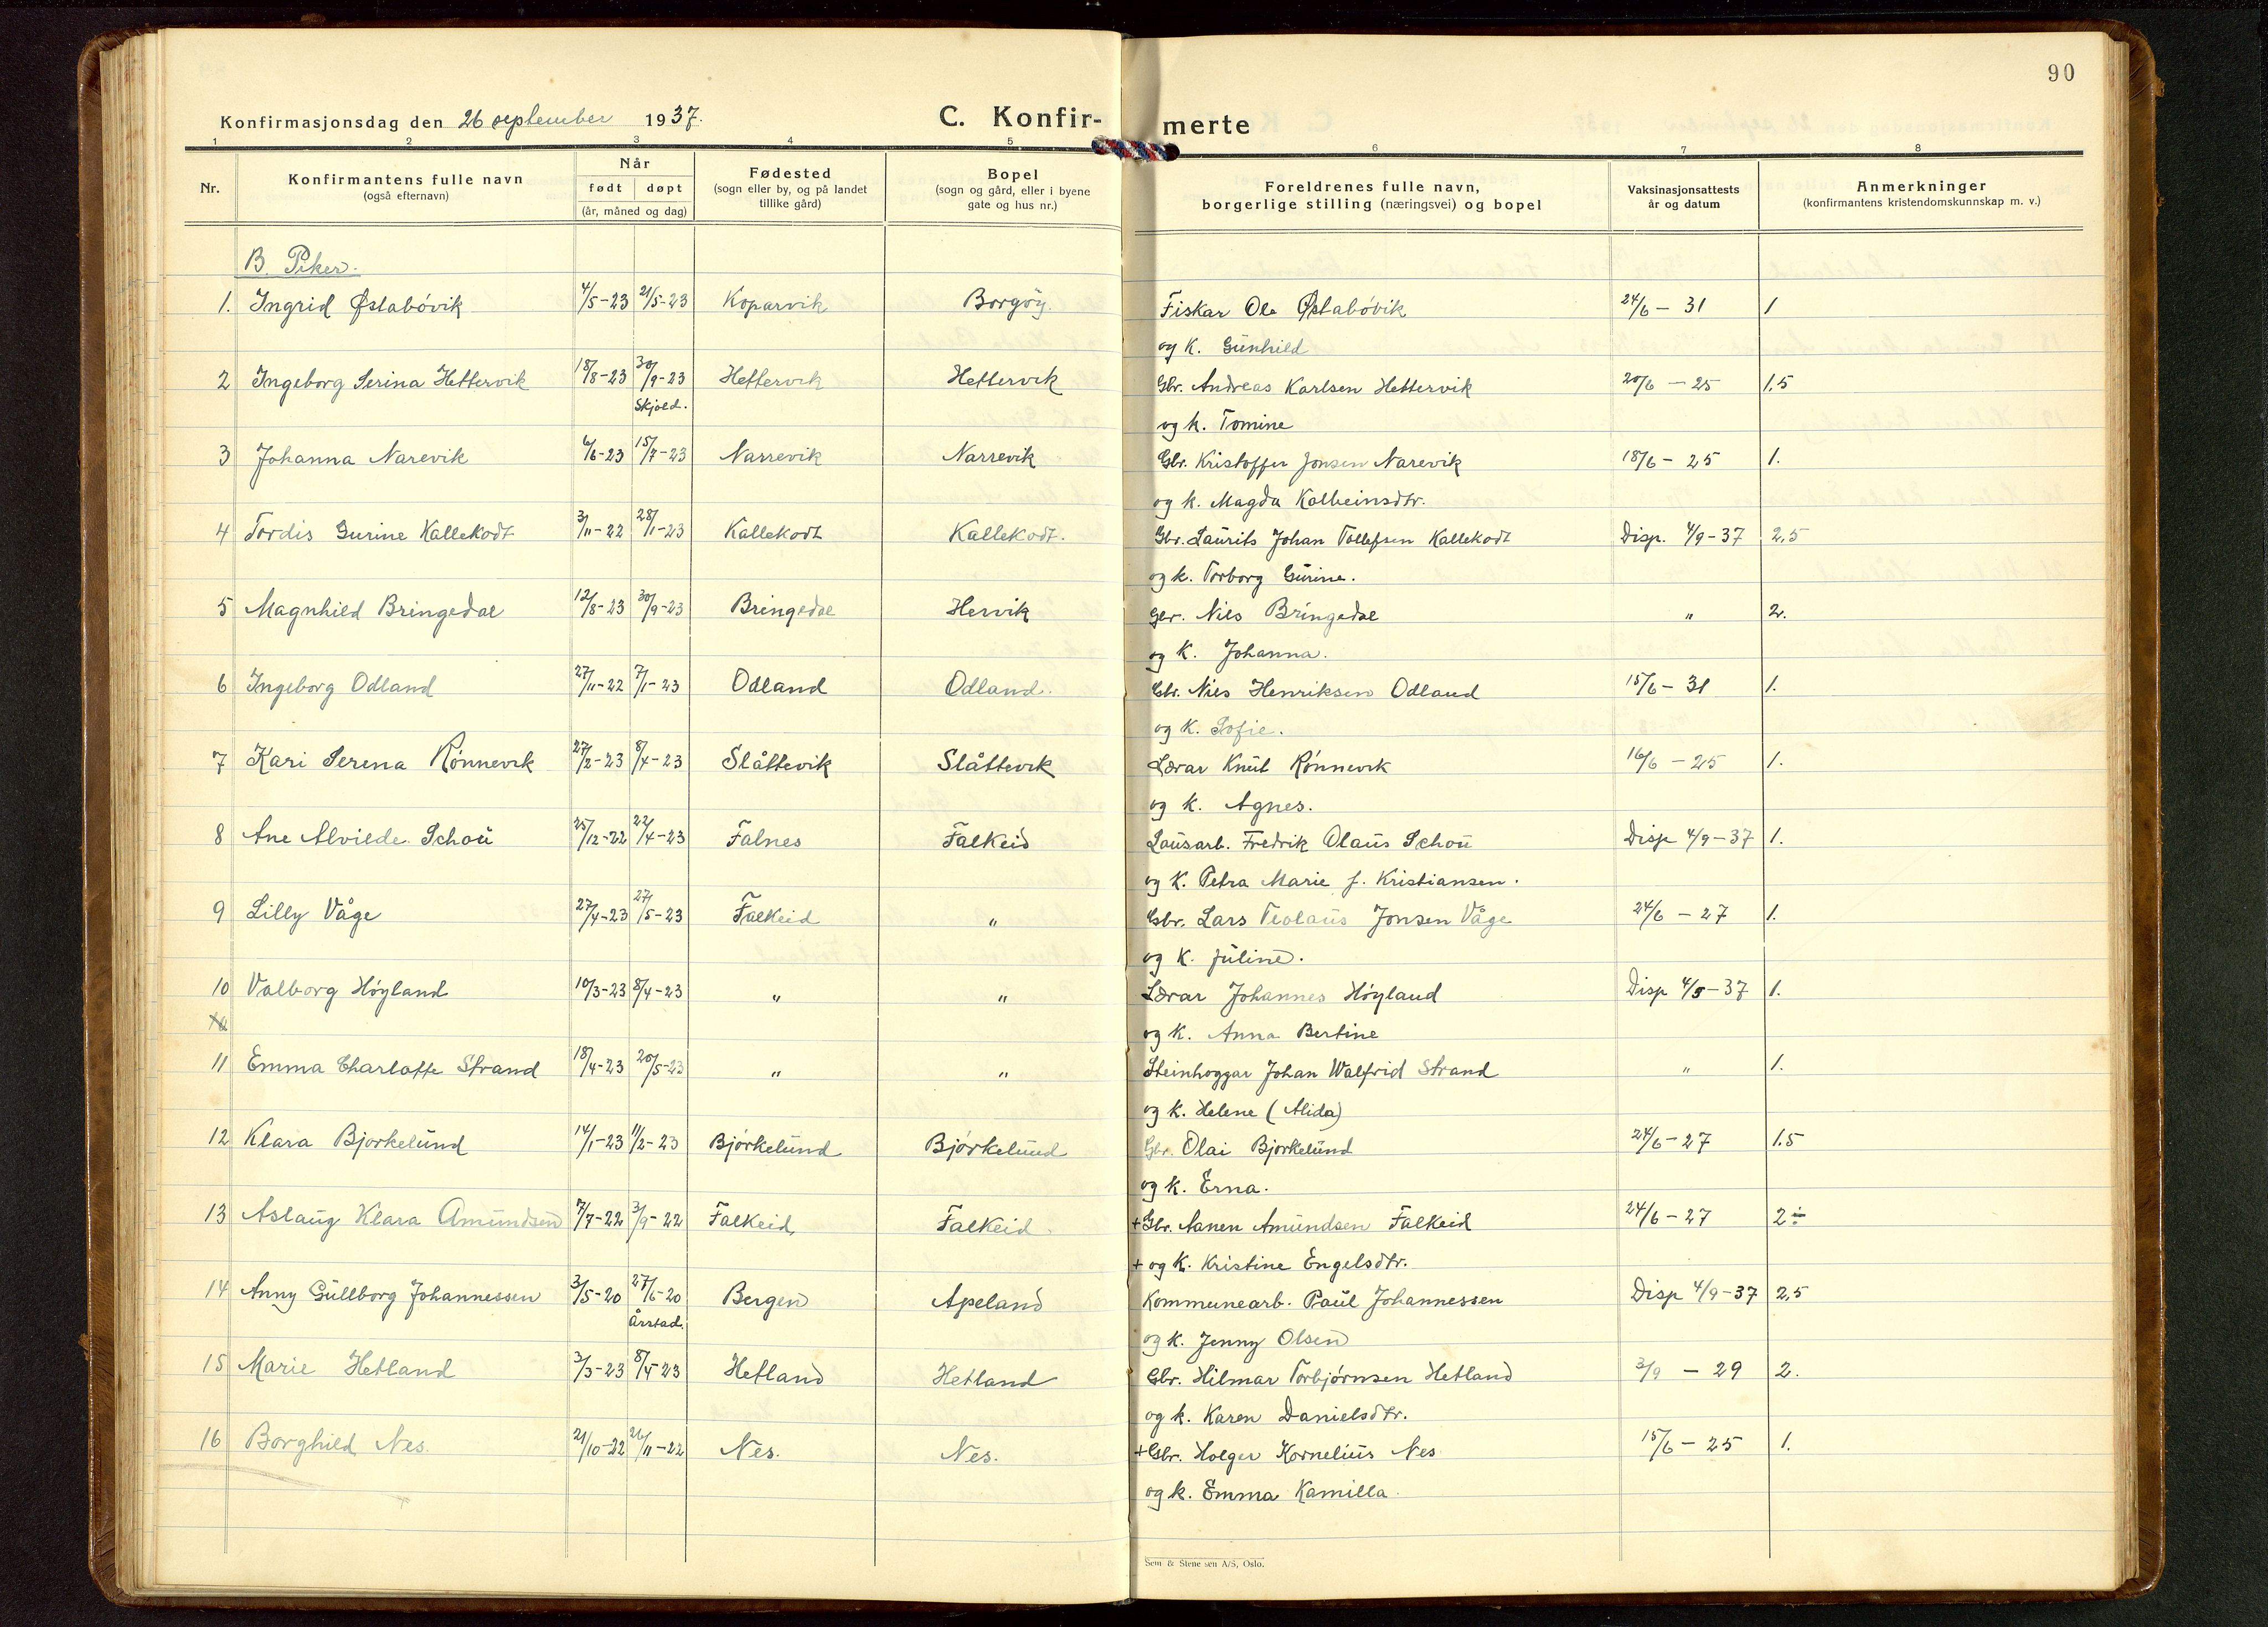 90
Konfirmasjonsdag den 26 september 1937.
C. Konfir-
merte
1 2 3 4 5 6 7 8
Nr.
Konfirmantens fulle navn
(også efternavn)
Når
født døpt
(år, måned og dag)
Fødested
(sogn eller by, og på landet
tillike gård)
Bopel
(sogn og gård, eller i byene
gate og hus nr.)
Foreldrenes fulle navn,
borgerlige stilling (næringsvei) og bopel
Vaksinasjonsattests
år og datum
Anmerkninger
(konfirmantens kristendomskunnskap m. v.)
B. Piker.
1. Ingrid Østabövik 4/5-23 21/5-23 Koparvik Borgøy. Fiskar Ole Østabövik 24/6 - 31 1
og K. Gunhild
2 Ingeborg Serina Hettervik 18/8-23 30/9-23 Hettervik Hettervik Gbr. Andreas Karlsen Hettervik 20/6 - 25 1.5
Skjold.
og k. Tomine
3 Johanna Narevik 6/6-23 15/7-23 Narrevik Narrevik Gbr. Kristoffer Jonsen Narevik 18/6 - 25 1.
og k. Magda Kolbeinsdtr.
4 Tordis Gurine Kallekodt 3/11-22 28/1-23 Kallekodt Kallekodt. Gbr. Laurits Johan Tollefsen Kallekodt Disp. 4/9-37 2,5
og k. Torborg Gurine.
5 Magnhild Bringedal 12/8-23 30/9-23 Bringedal Hervik Gbr. Nils Bringedal " 2.
og K. Johanna.
6 Ingeborg Odland 27/11-22 7/1-23 Odland Odland. Gbr. Nils Henriksen Odland 15/6 - 31 1.
og K. Sofie.
7 Kari Serena Rønnevik 27/2-23 8/4-23 Slåttevik Slåttevik Lærar Knut Rønnevik 16/6 - 25 1.
og K. Agnes.
8 Ane Alvilde Schou 25/12-22 22/4-23 Falnes Falkeid Lausarb. Fredrik Olaus Schou Disp 4/9-37 1.
og K. Petra Marie f. Kristiansen.
9 Lilly Våge 27/4-23 27/5-23 Falkeid " Gbr. Lars Teolaus Jonsen Våge 24/6 - 27 1.
og K. Juline.
10 Valborg Høyland 10/3-23 8/4-23 " " Lærar Johannes Høyland Disp 4/9-37 1.
og K. Anna Bertine
11 Emma Charlotte Strand 18/4-23 20/5-23 " " Steinhoggar Johan Walfrid Strand " 1.
og K. Helene (Alida)
12 Klara Bjorkelund 14/1-23 11/2-23 Bjørkelund Bjørkelund Gbr. Olai Bjorkelund 24/6-27 1.5
og k. Erna.
13 Aslaug Klara Amundsen 7/7-22 3/9-22 Falkeid Falkeid + Gbr. Nanen Amundsen Falkeid 24/6-27 2÷
+ og K. Kristine Engelsdtr.
14 Anny Gullborg Johannessen 3/5-20 27/6-20 Bergen Apeland Kommunearb. Paul Johannessen Disp 4/9-37 2,5
Årstad.
og K. Jenny Olsen
15 Marie Hetland 3/3-23 8/4-23 Hetland Hetland Gbr. Hilmar Torbjørnsen Hetland 3/9 - 29 2.
og k. Karen Danielsdtr.
16 Borghild Nes. 21/10-22 26/11-22 Nes. Nes. + Gbr. Holger Kornelius Nes 15/6 - 25 1.
og k. Emma Kamilla.
Sem & Stenersen A/S, Oslo.